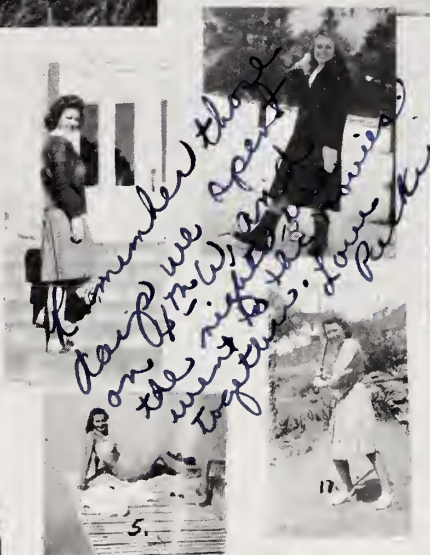 Remember those
days we spent
on 4th W, and
the nights we
went to the movies
together. Love
5.
17.